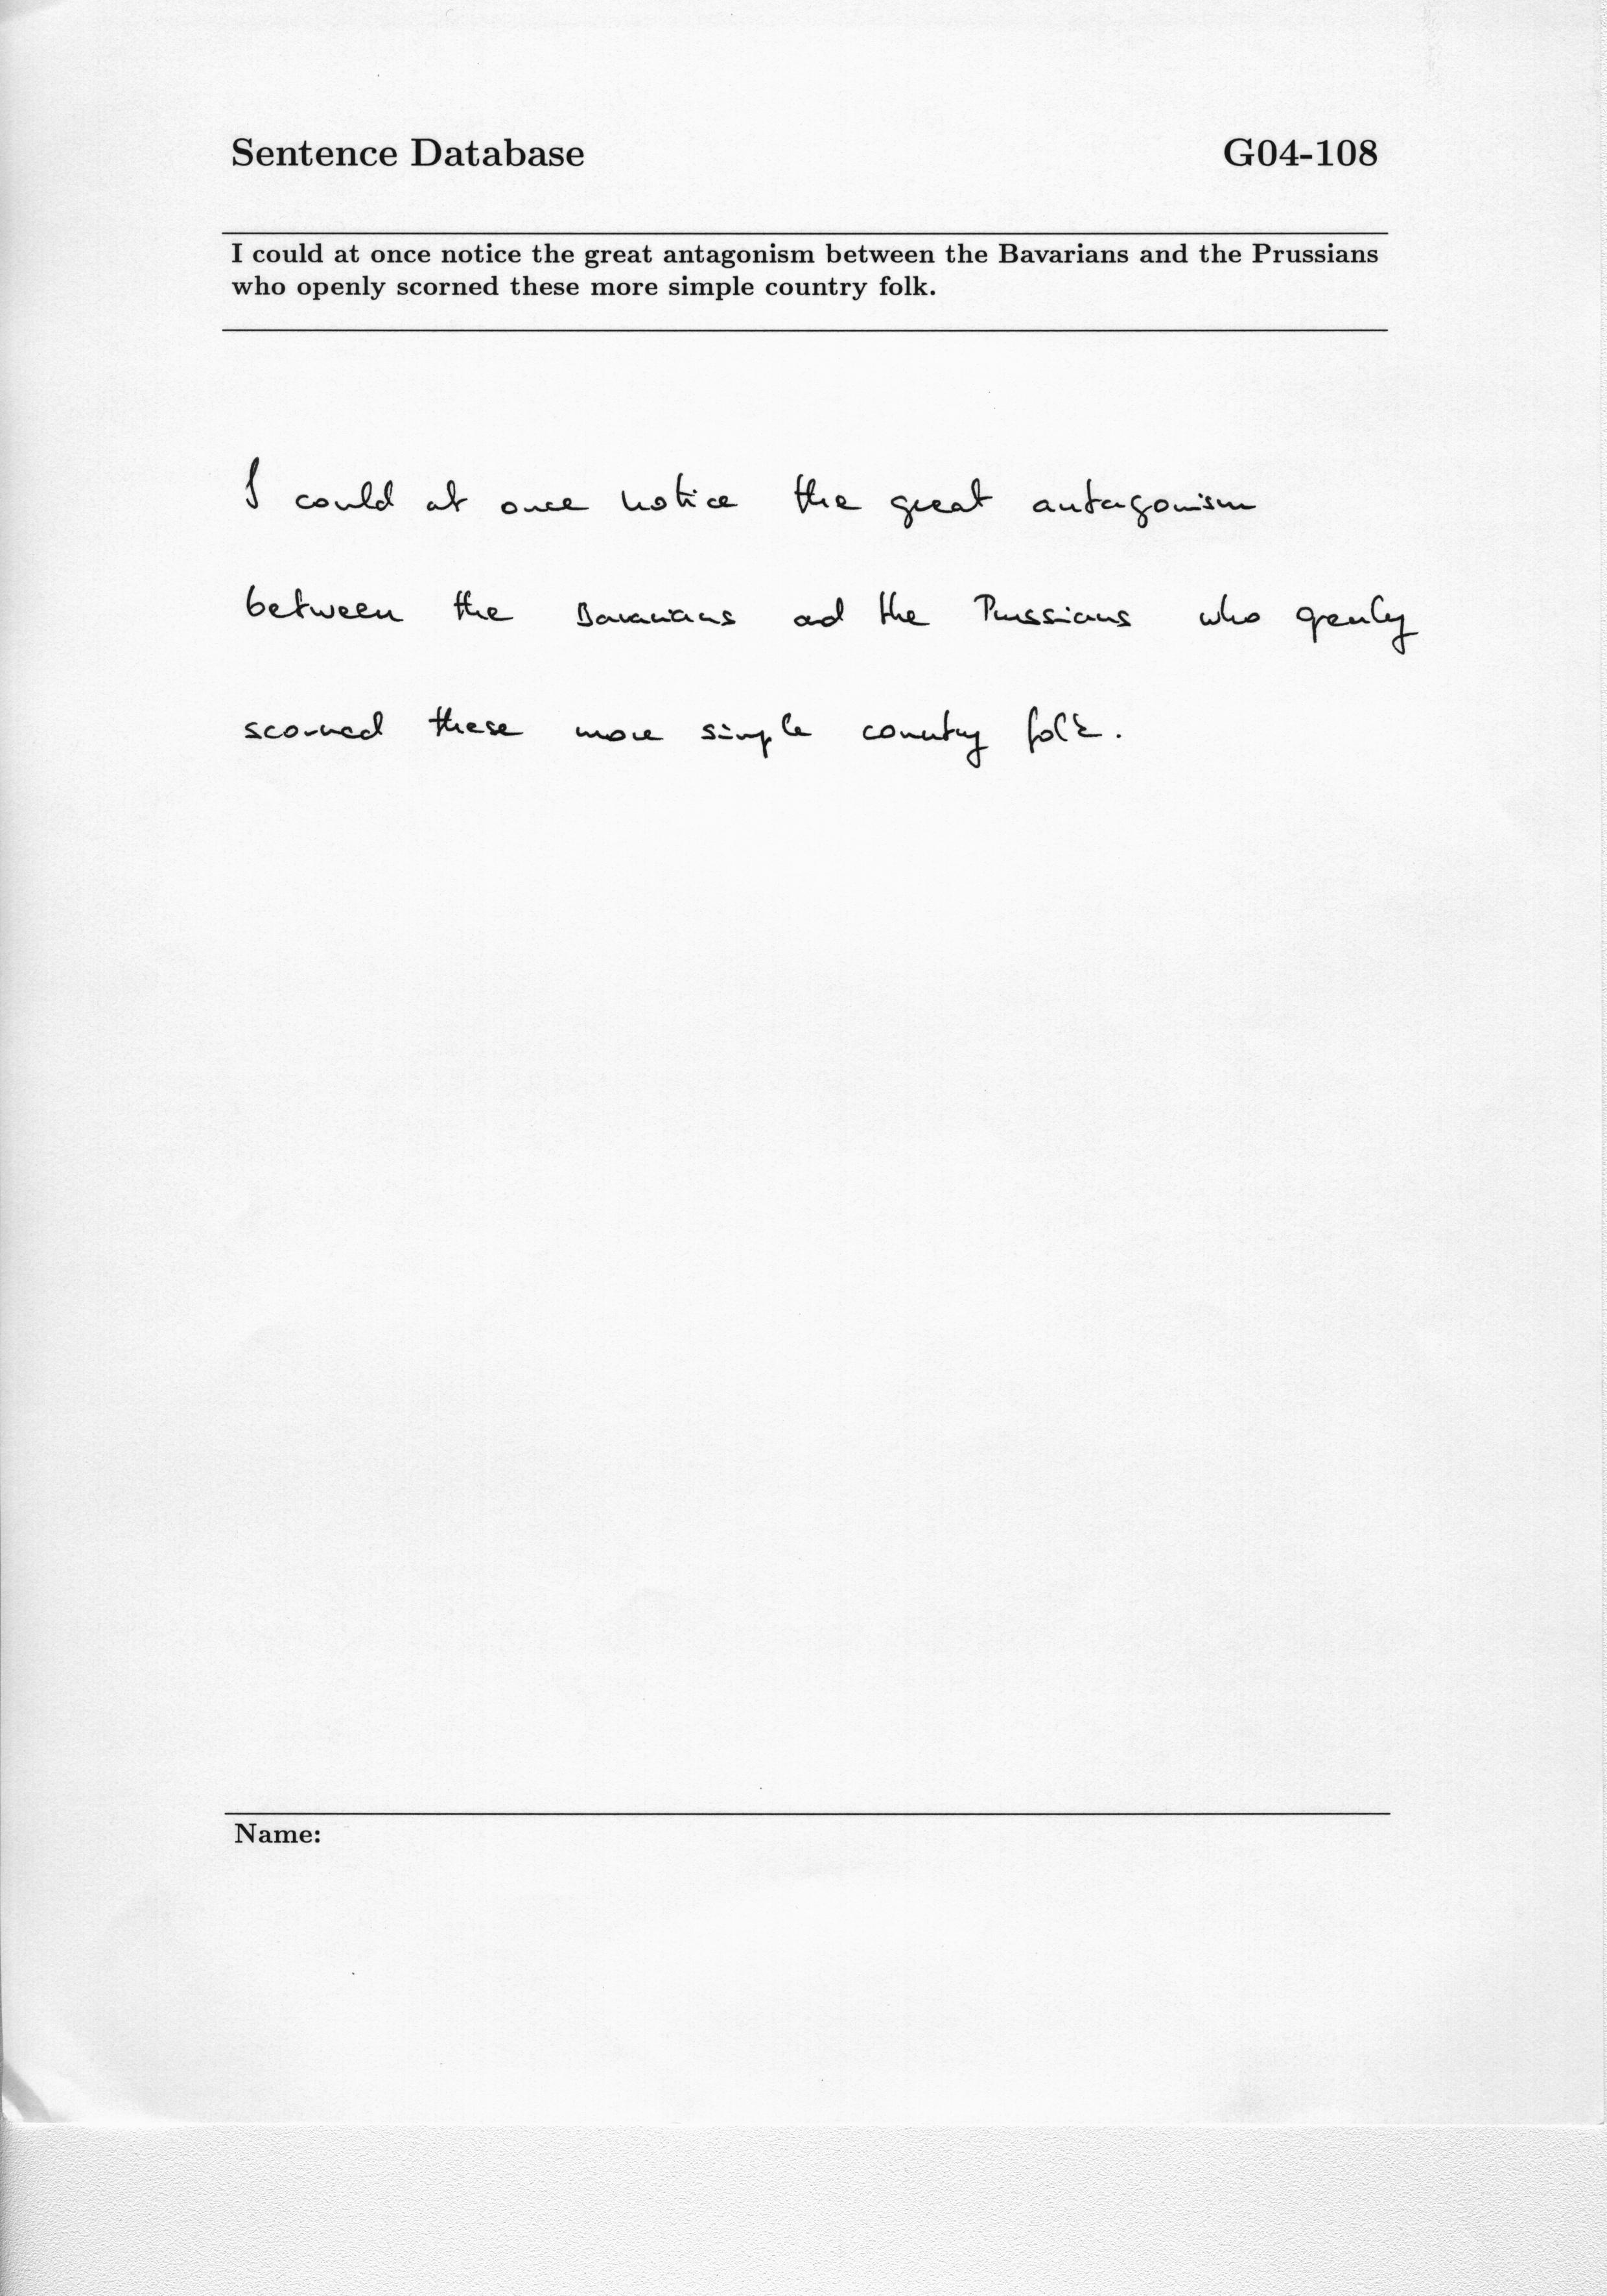 Sentence Database G04-108
I could at once notice the great antagonism between the Bavarians and the Prussians
who openly scorned these more simple country folk.
I could at once notice the great antagonism
between the Bavarians and the Prussians who openly
scorned these more simple country folk.
Name: